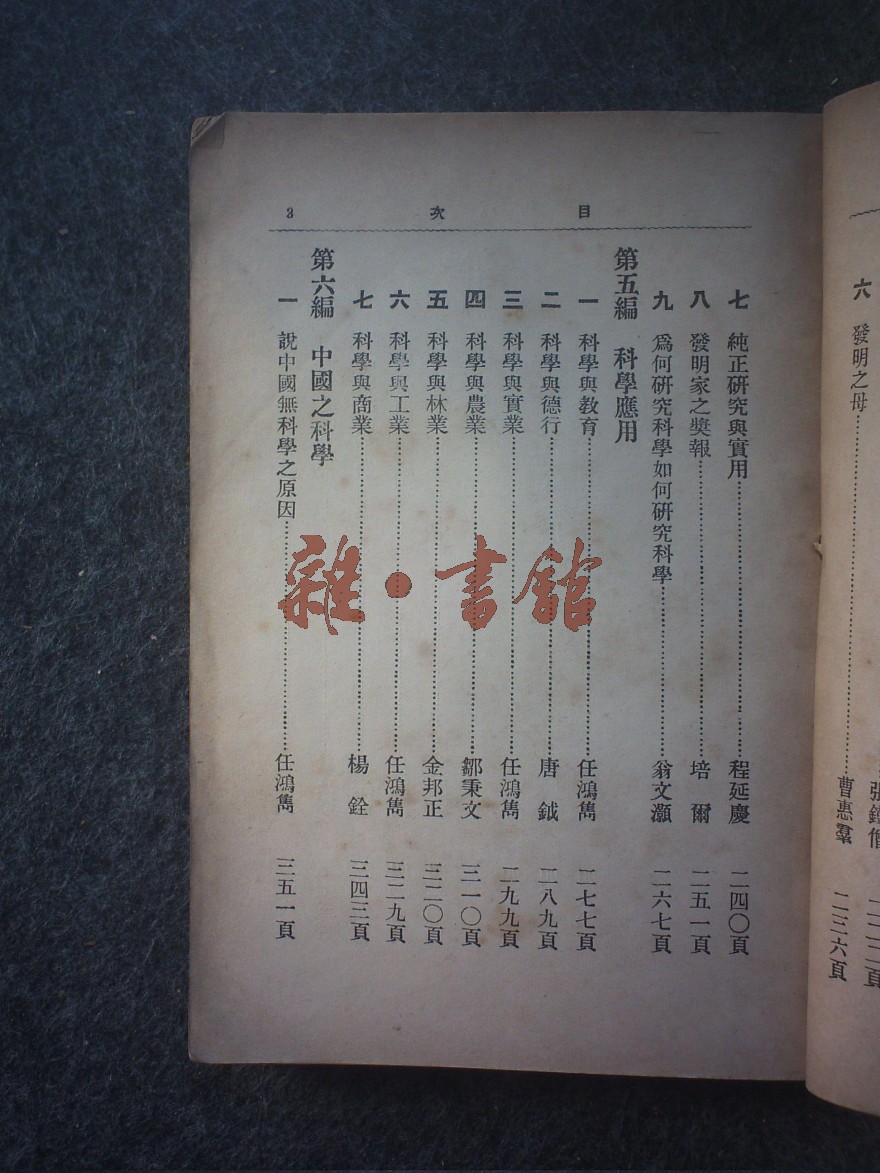 六 發明之母 曹惠羣 二三六頁
目次 3
七 純正研究與實用 程延慶 二四〇頁
八 發明家之獎報 培爾 二五一頁
九 爲何研究科學如何研究科學 翁文灝 二六七頁
第五編 科學應用
一 科學與教育 任鴻雋 二七七頁
二 科學與德行 唐鉞 二八九頁
三 科學與實業 任鴻雋 二九九頁
四 科學與農業 鄒秉文 三一〇頁
五 科學與林業 金邦正 三二〇頁
六 科學與工業 任鴻雋 三二九頁
七 科學與商業 楊銓 三四三頁
第六編 中國之科學
一 說中國無科學之原因 任鴻雋 三五一頁
雜·書館